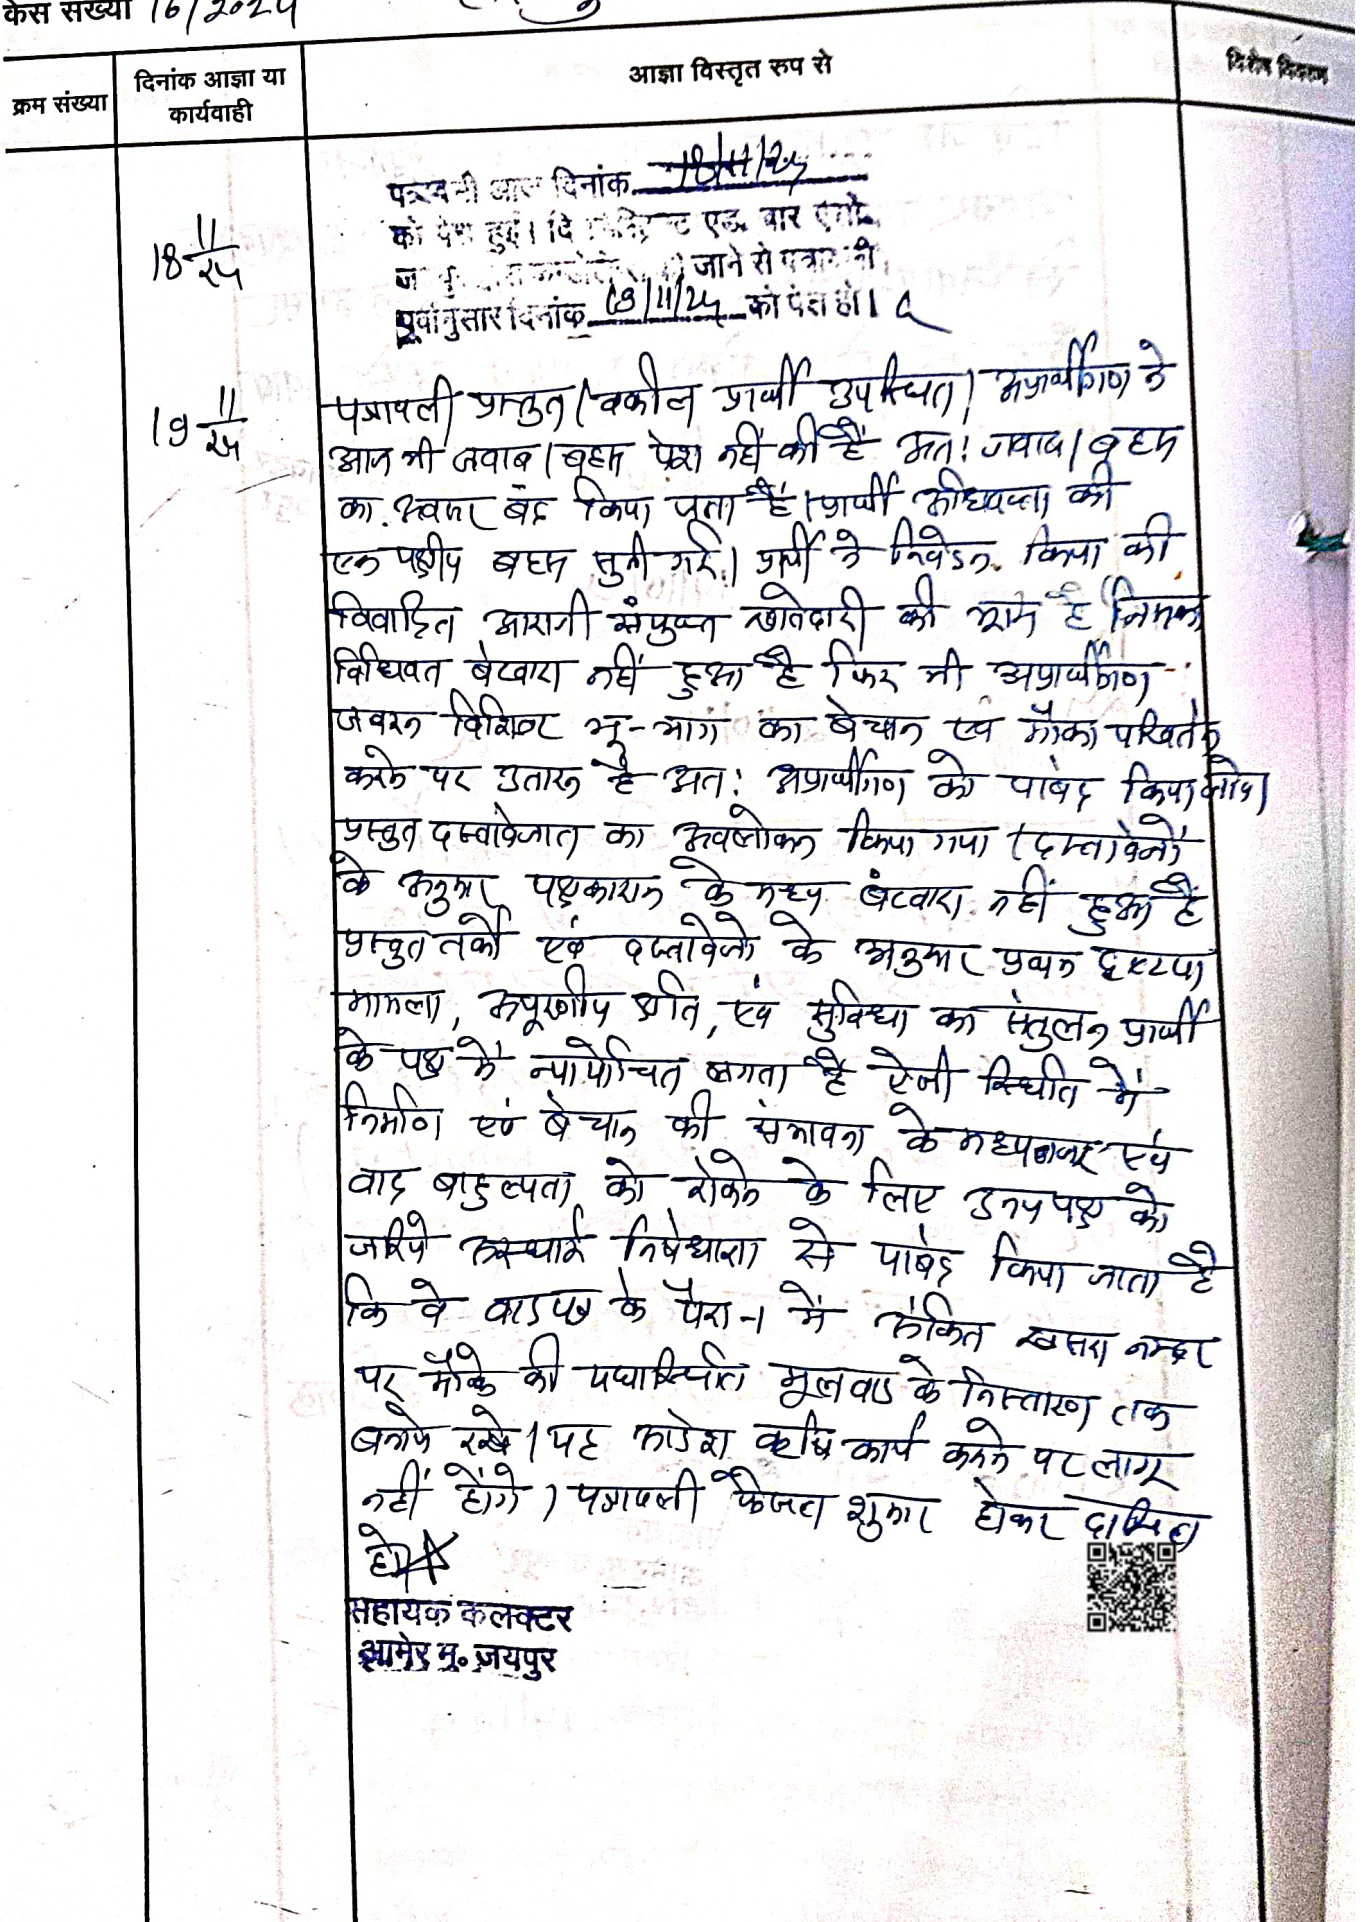 केस संख्या 16/2024
क्रम संख्या
दिनांक आज्ञा या
कार्यवाही
आज्ञा विस्तृत रुप से
विशेष विवरण
18 11/24
पत्रावली आज दिनांक 18/11/24
को पेश हुई। दि एड. बार एसो.
जाने से पत्रावली
पूर्वानुसार दिनांक 19/11/24 को पेश हो।
19 11/24
पत्रावली प्रस्तुत। वकील प्रार्थी उपस्थित। अप्रार्थीगण ने
आज भी जवाब/बहस पेश नहीं की है अतः जवाब/बहस
का अवसर बंद किया जाता है। प्रार्थी अधिवक्ता की
एक पक्षीय बहस सुनी गई। प्रार्थी ने निवेदन किया की
विवादित आराजी संयुक्त खातेदारी की भूमि है जिसका
विधिवत बंटवारा नहीं हुआ है फिर भी अप्रार्थीगण
जबरन विशिष्ट भू-भाग का बेचान एवं मौका परिवर्तन
करने पर उतारू है अतः अप्रार्थीगण को पाबंद किया जावे।
प्रस्तुत दस्तावेजात का अवलोकन किया गया। दस्तावेजों
के अनुसार पक्षकारान के मध्य बंटवारा नहीं हुआ है
प्रस्तुत तर्कों एवं दस्तावेजो के अनुसार प्रथम दृष्टया
मामला, अपूरणीय क्षति, एवं सुविधा का संतुलन प्रार्थी
के पक्ष में न्यायोचित लगता है ऐसी स्थिति में
निर्माण एवं बेचान की संभावना के मध्यनजर एवं
वाद बाहुल्यता को रोकने के लिए उभयपक्ष को
जरिये अस्थाई निषेधाज्ञा से पाबंद किया जाता है
कि वे वादपत्र के पैरा-1 में अंकित खसरा नम्बर
पर मौके की यथास्थिति मूलवाद के निस्तारण तक
बनाये रखे। यह आदेश कृषि कार्य करने पर लागू
नहीं होंगे। पत्रावली फैसल शुमार होकर दाखिल
हो
सहायक कलक्टर
आमेर मु. जयपुर